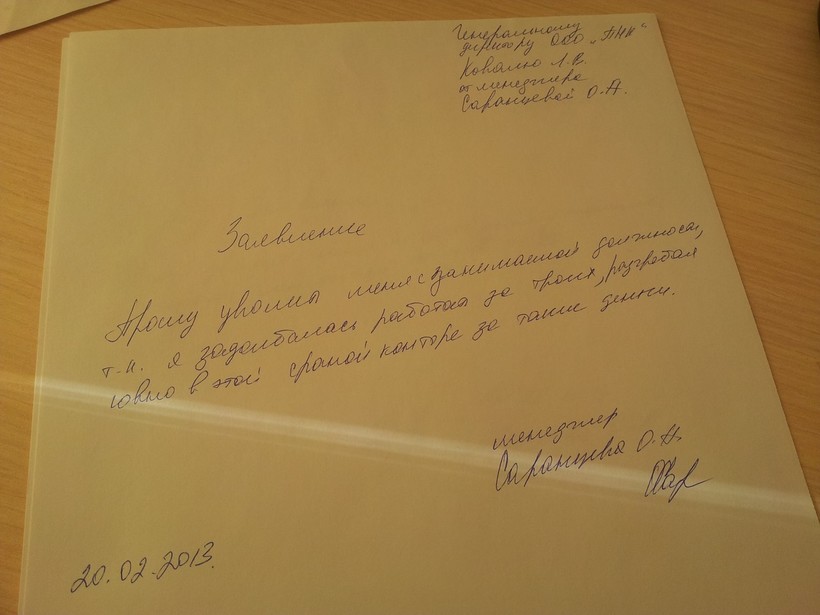 Генеральному
директору ООО „ТНП"
Ковалю Л.В.
от менеджера
Саранцевой О.А.
Заявление
Прошу уволить меня с занимаемой должности,
т.к. я задолбалась работая за троих, разгребая
говно в этой сраной конторе за такие деньги.
менеджер
Саранцева О.А.
20.02.2013.